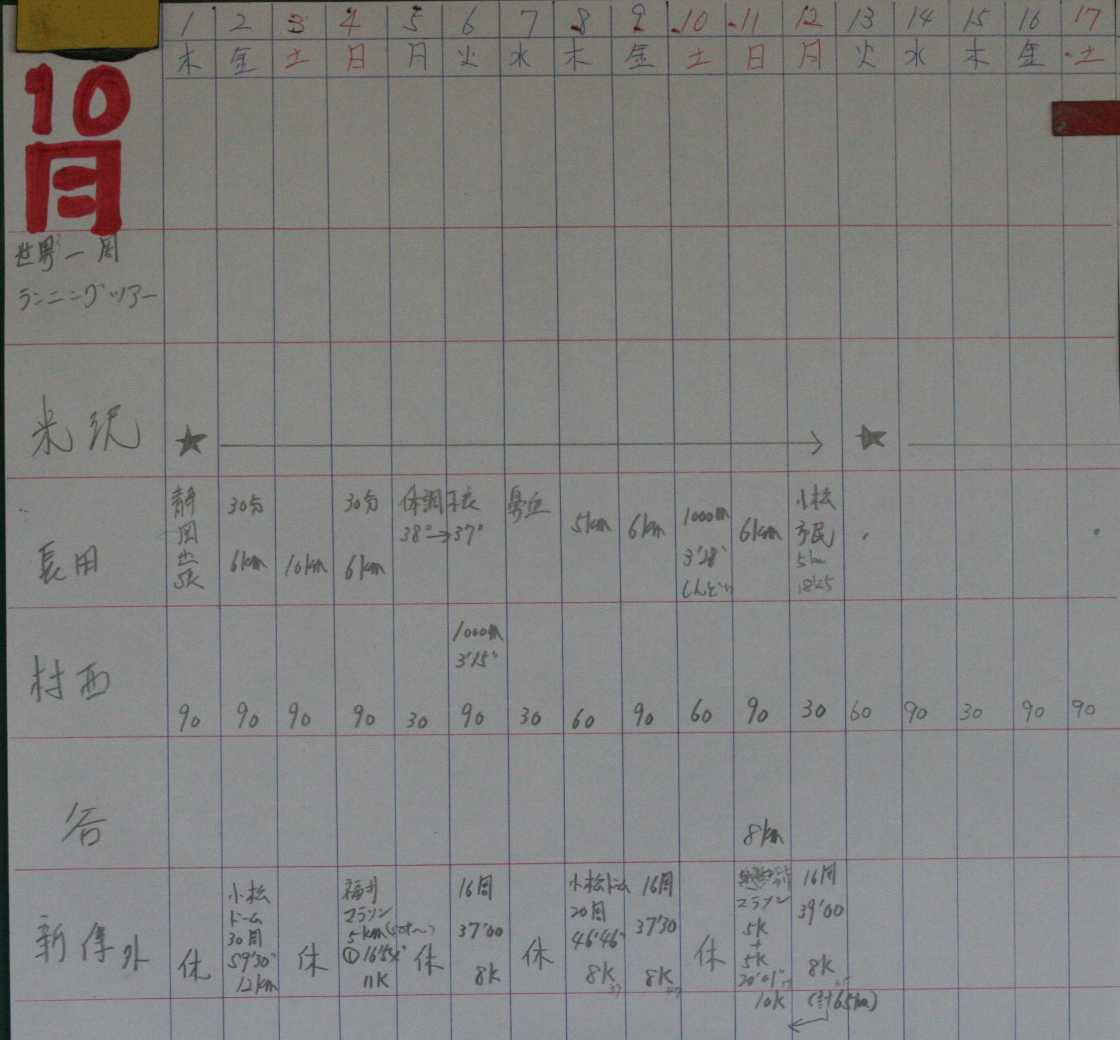 1 2 3 4 5 6 7 8 9 10 11 12 13 14 15 16 17
木 金 土 日 月 火 水 木 金 土 日 月 火 水 木 金 土
10
月
世界一周
ランニングツアー
米沢
★ → ★
長田
静
岡
5K
30分
6km
10km
30分
6km
体調不良
38°→37°
5km
6km
1000m
3'28"
しんどい
6km
小松
市民
5km
村西
1000m
3'15"
90 90 90 90 30 90 30 60 90 60 90 30 60 90 30 90 90
谷
8km
新保外
休
小松
ドーム
30周
59'30"
12km
休
福井
マラソン
5km
①16'54"
11K
休
16周
37'00
8K
休
小松ドーム
20周
46'46"
8K
16周
37'30
8K
休
マラソン
5K
+
5K
20'01"
10K
16周
39'00
8K
(計65km)